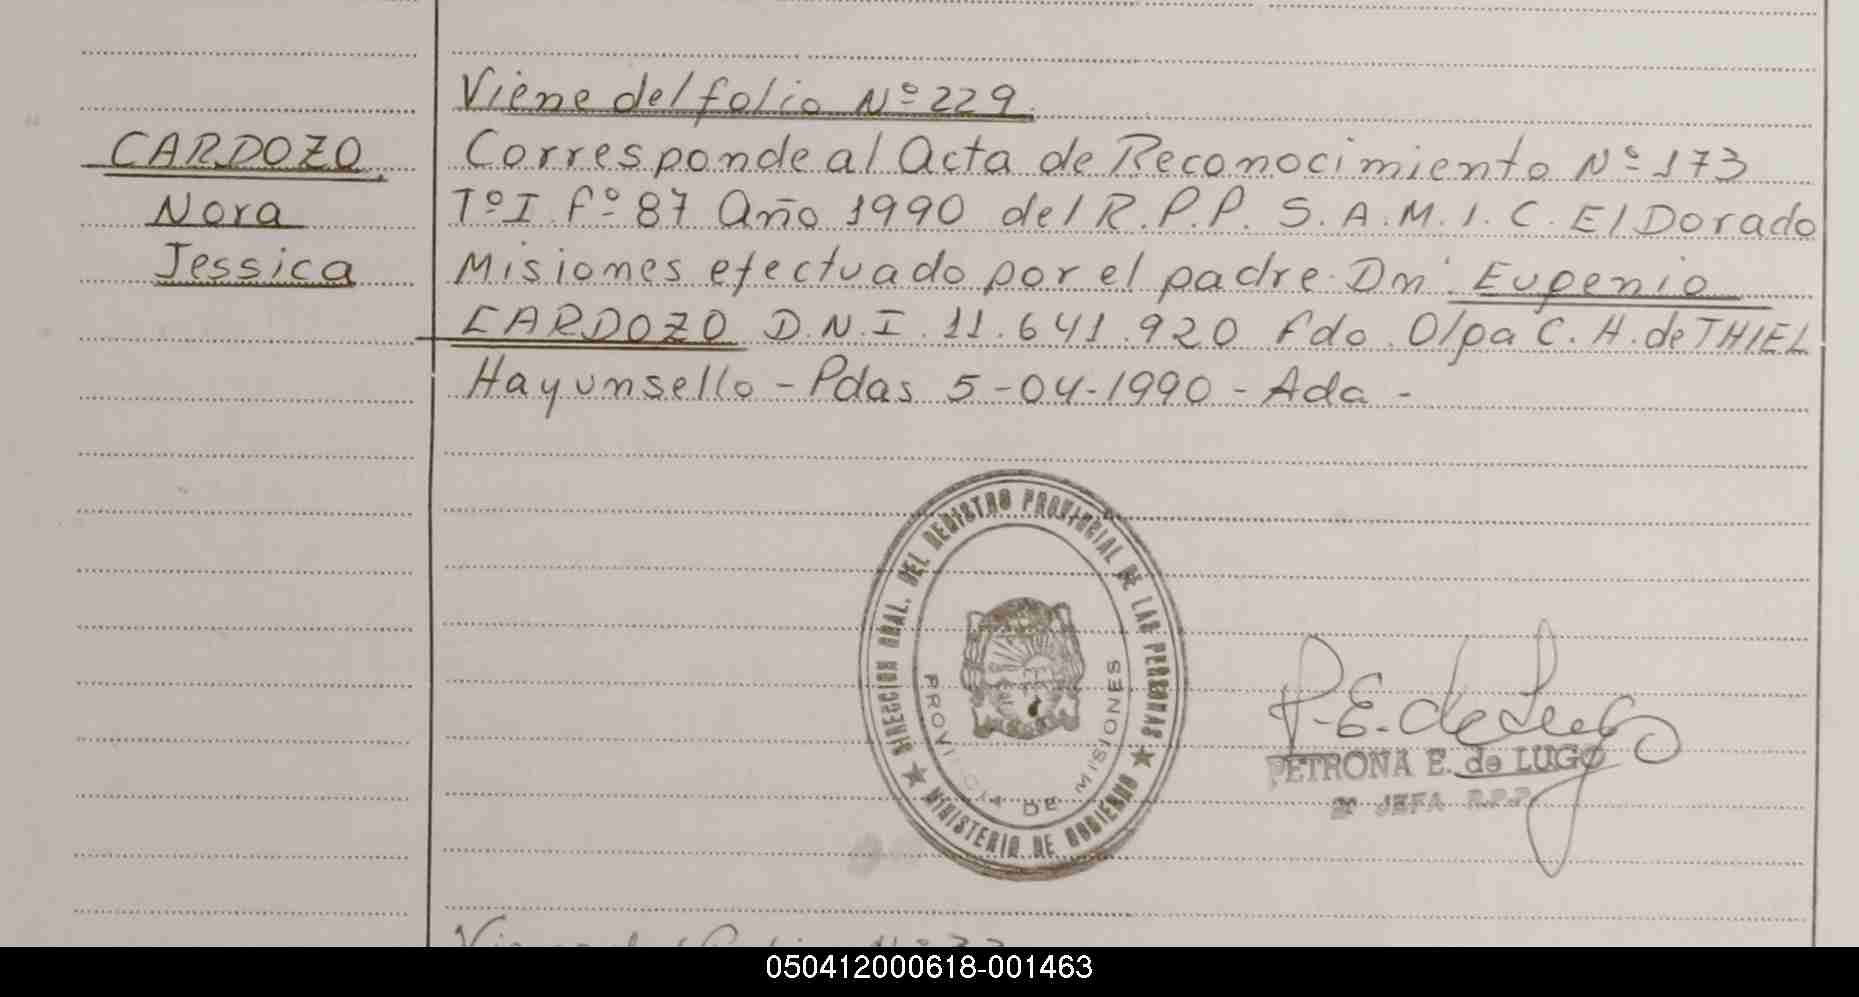 Viene del folio Nº 229.
CARDOZO
Nora
Jessica
Corresponde al Acta de Reconocimiento Nº 173
Tº I fº 87 Año 1990 del R.P.P. S.A.M.I.C. El Dorado
Misiones efectuado por el padre Dn. Eugenio
CARDOZO D.N.I. 11.641.920 fdo. Olga C. H. de THIEL
Hay un sello - Pdas 5-04-1990 - Ada -
DIRECCION GRAL. DEL REGISTRO PROVINCIAL DE LAS PERSONAS
★ MINISTERIO DE GOBIERNO ★
PROVINCIA DE MISIONES
P. E. de Lugo
PETRONA E. de LUGO
JEFA R.P.P.
050412000618-001463